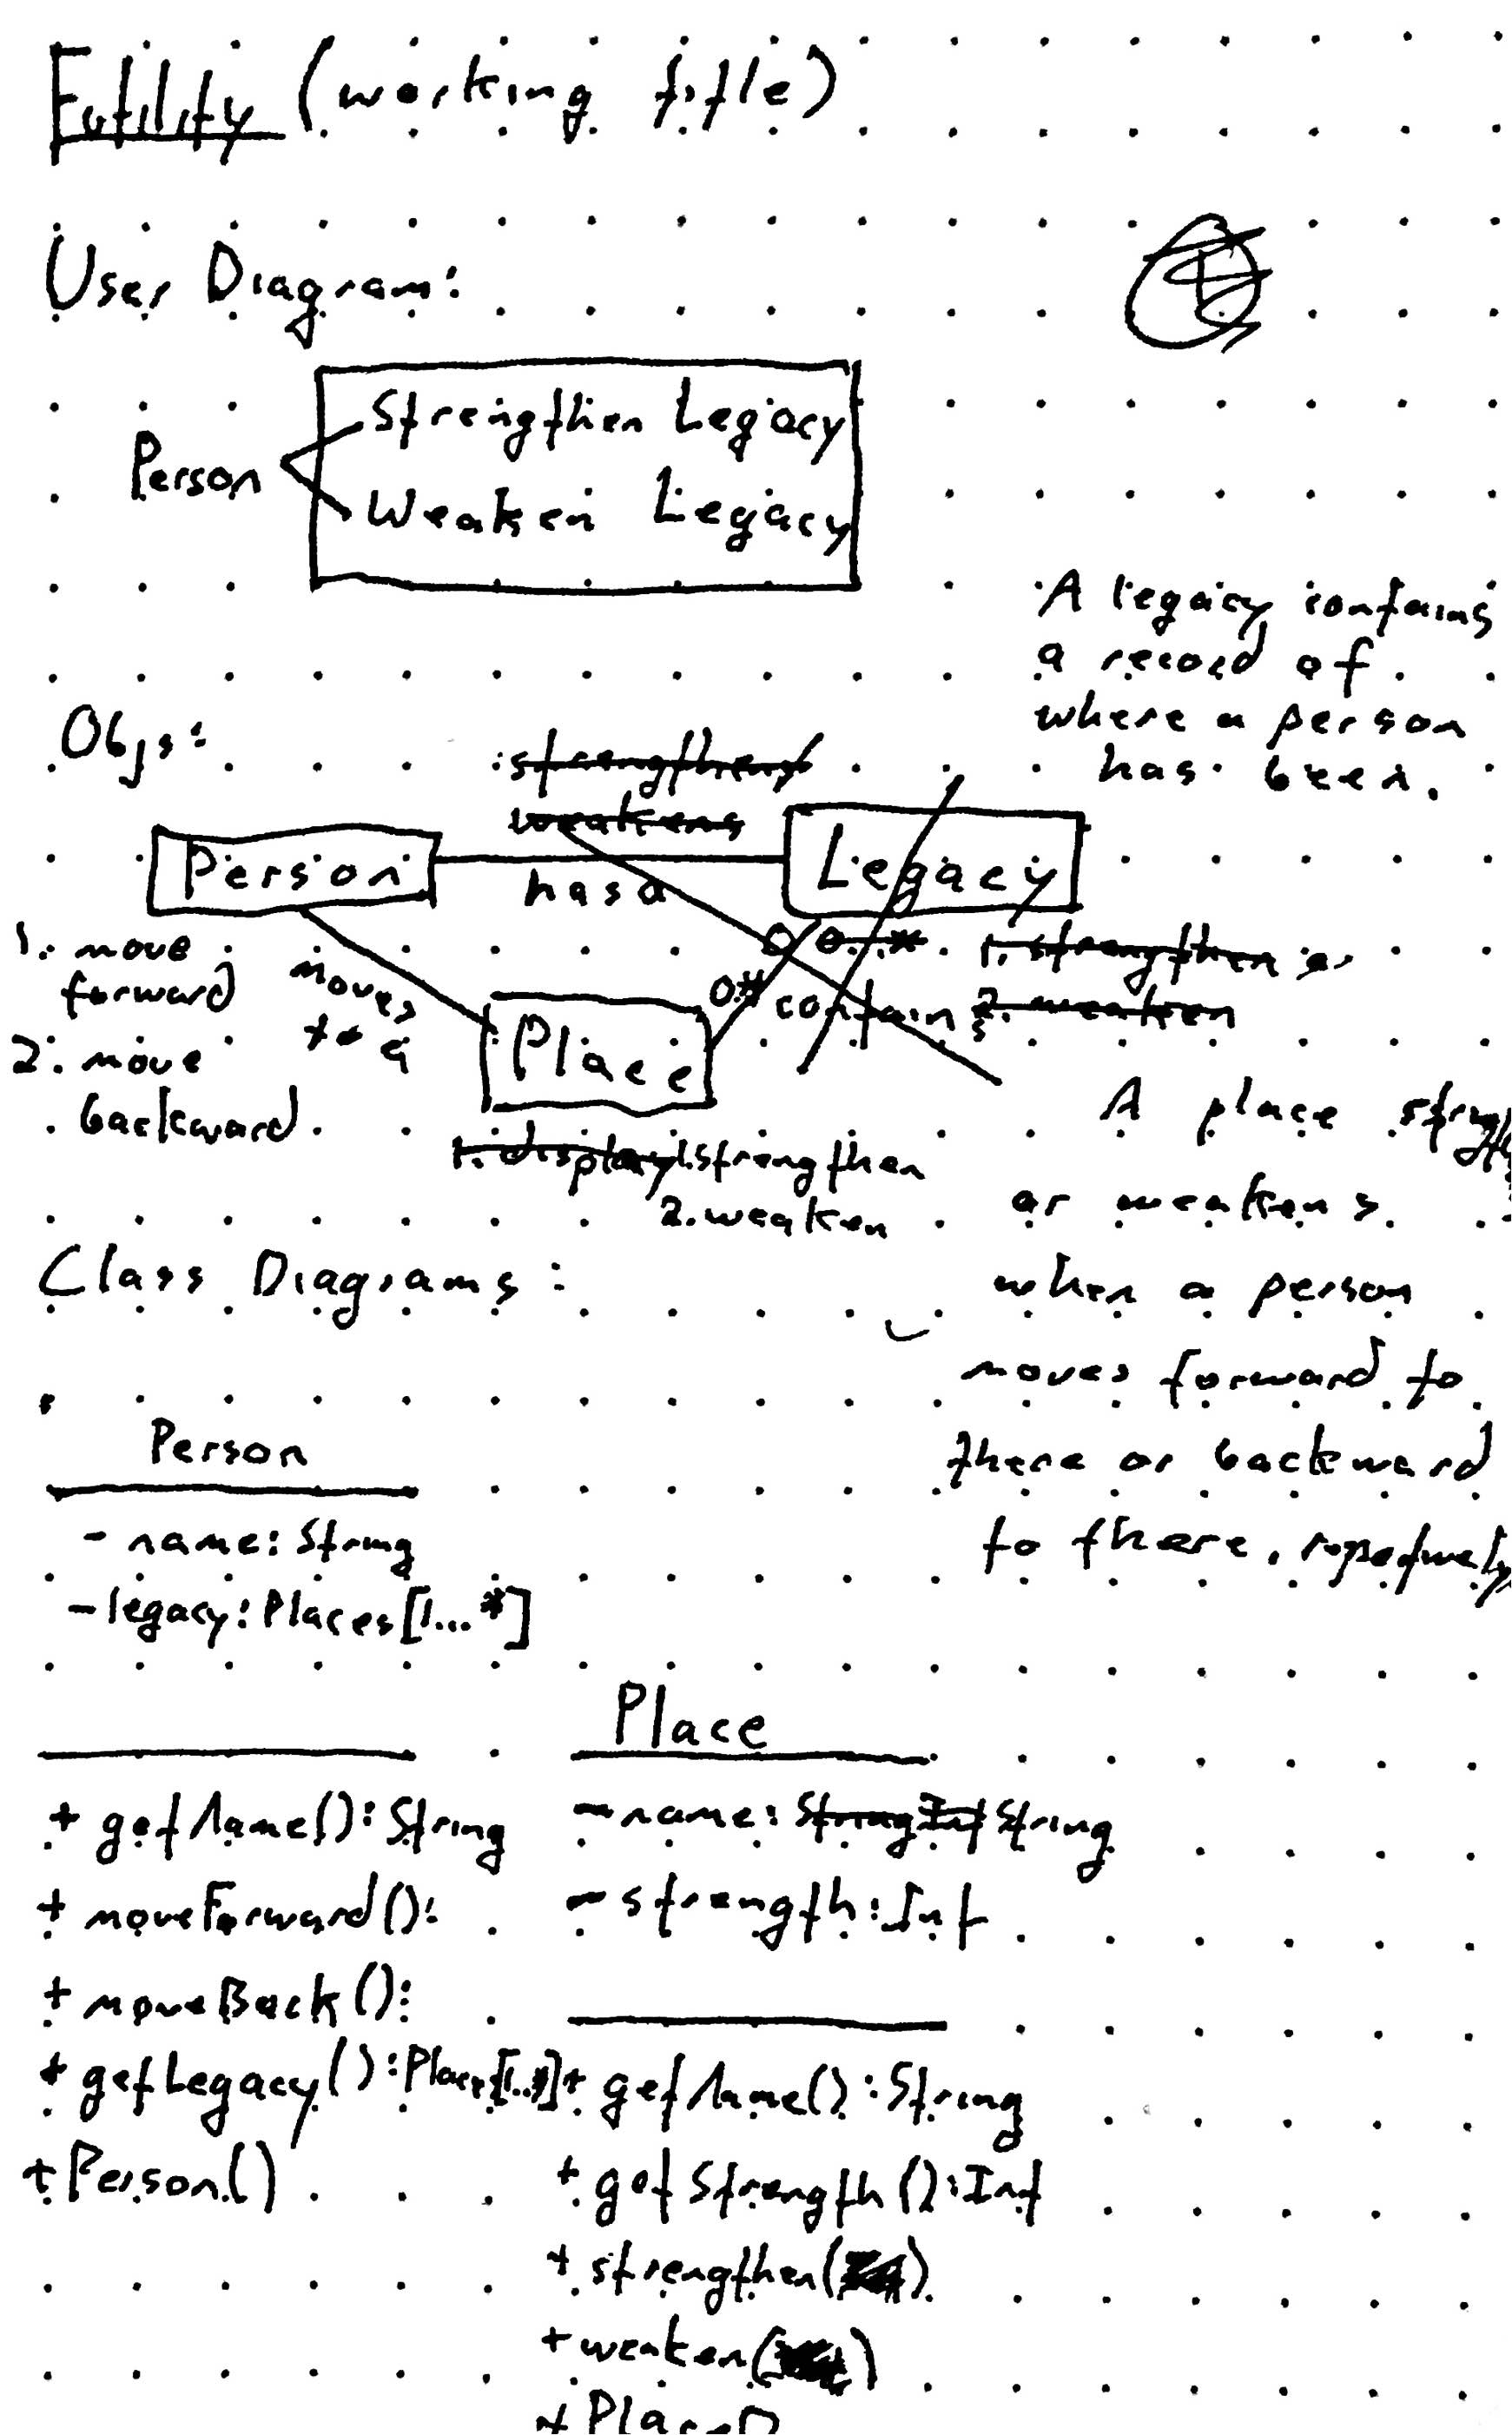 Futility (working title)
User Diagram:
Person
Strengthen Legacy
Weaken Legacy
A legacy contains
a record of
where a person
has been.
Objs:
strengthens
weakens
Person
has a
Legacy
1. move
forward
2. move
backward
moves
to a
0..*
0*
contains
1. strengthen
2. weaken
Place
1. display
1. strengthen
2. weaken
A place
or weakens
when a person
moves forward to
there or backward
to there, respectively
Class Diagrams:
Person
- name: String
- legacy: Places[1...*]
+ getName(): String
+ moveForward():
+ moveBack():
+ getLegacy(): Places[1..*]
+ Person()
Place
- name: String Int String
- strength: Int
+ getName(): String
+ getStrength(): Int
+ strengthen()
+ weaken()
+ Place()